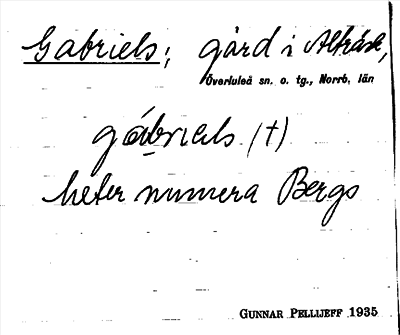 Gabriels; gård i Alträsk,
Överluleå sn. o. tg., Norrb. län
gábriels (†)
heter numera Bergs
GUNNAR PELLIJEFF 1935